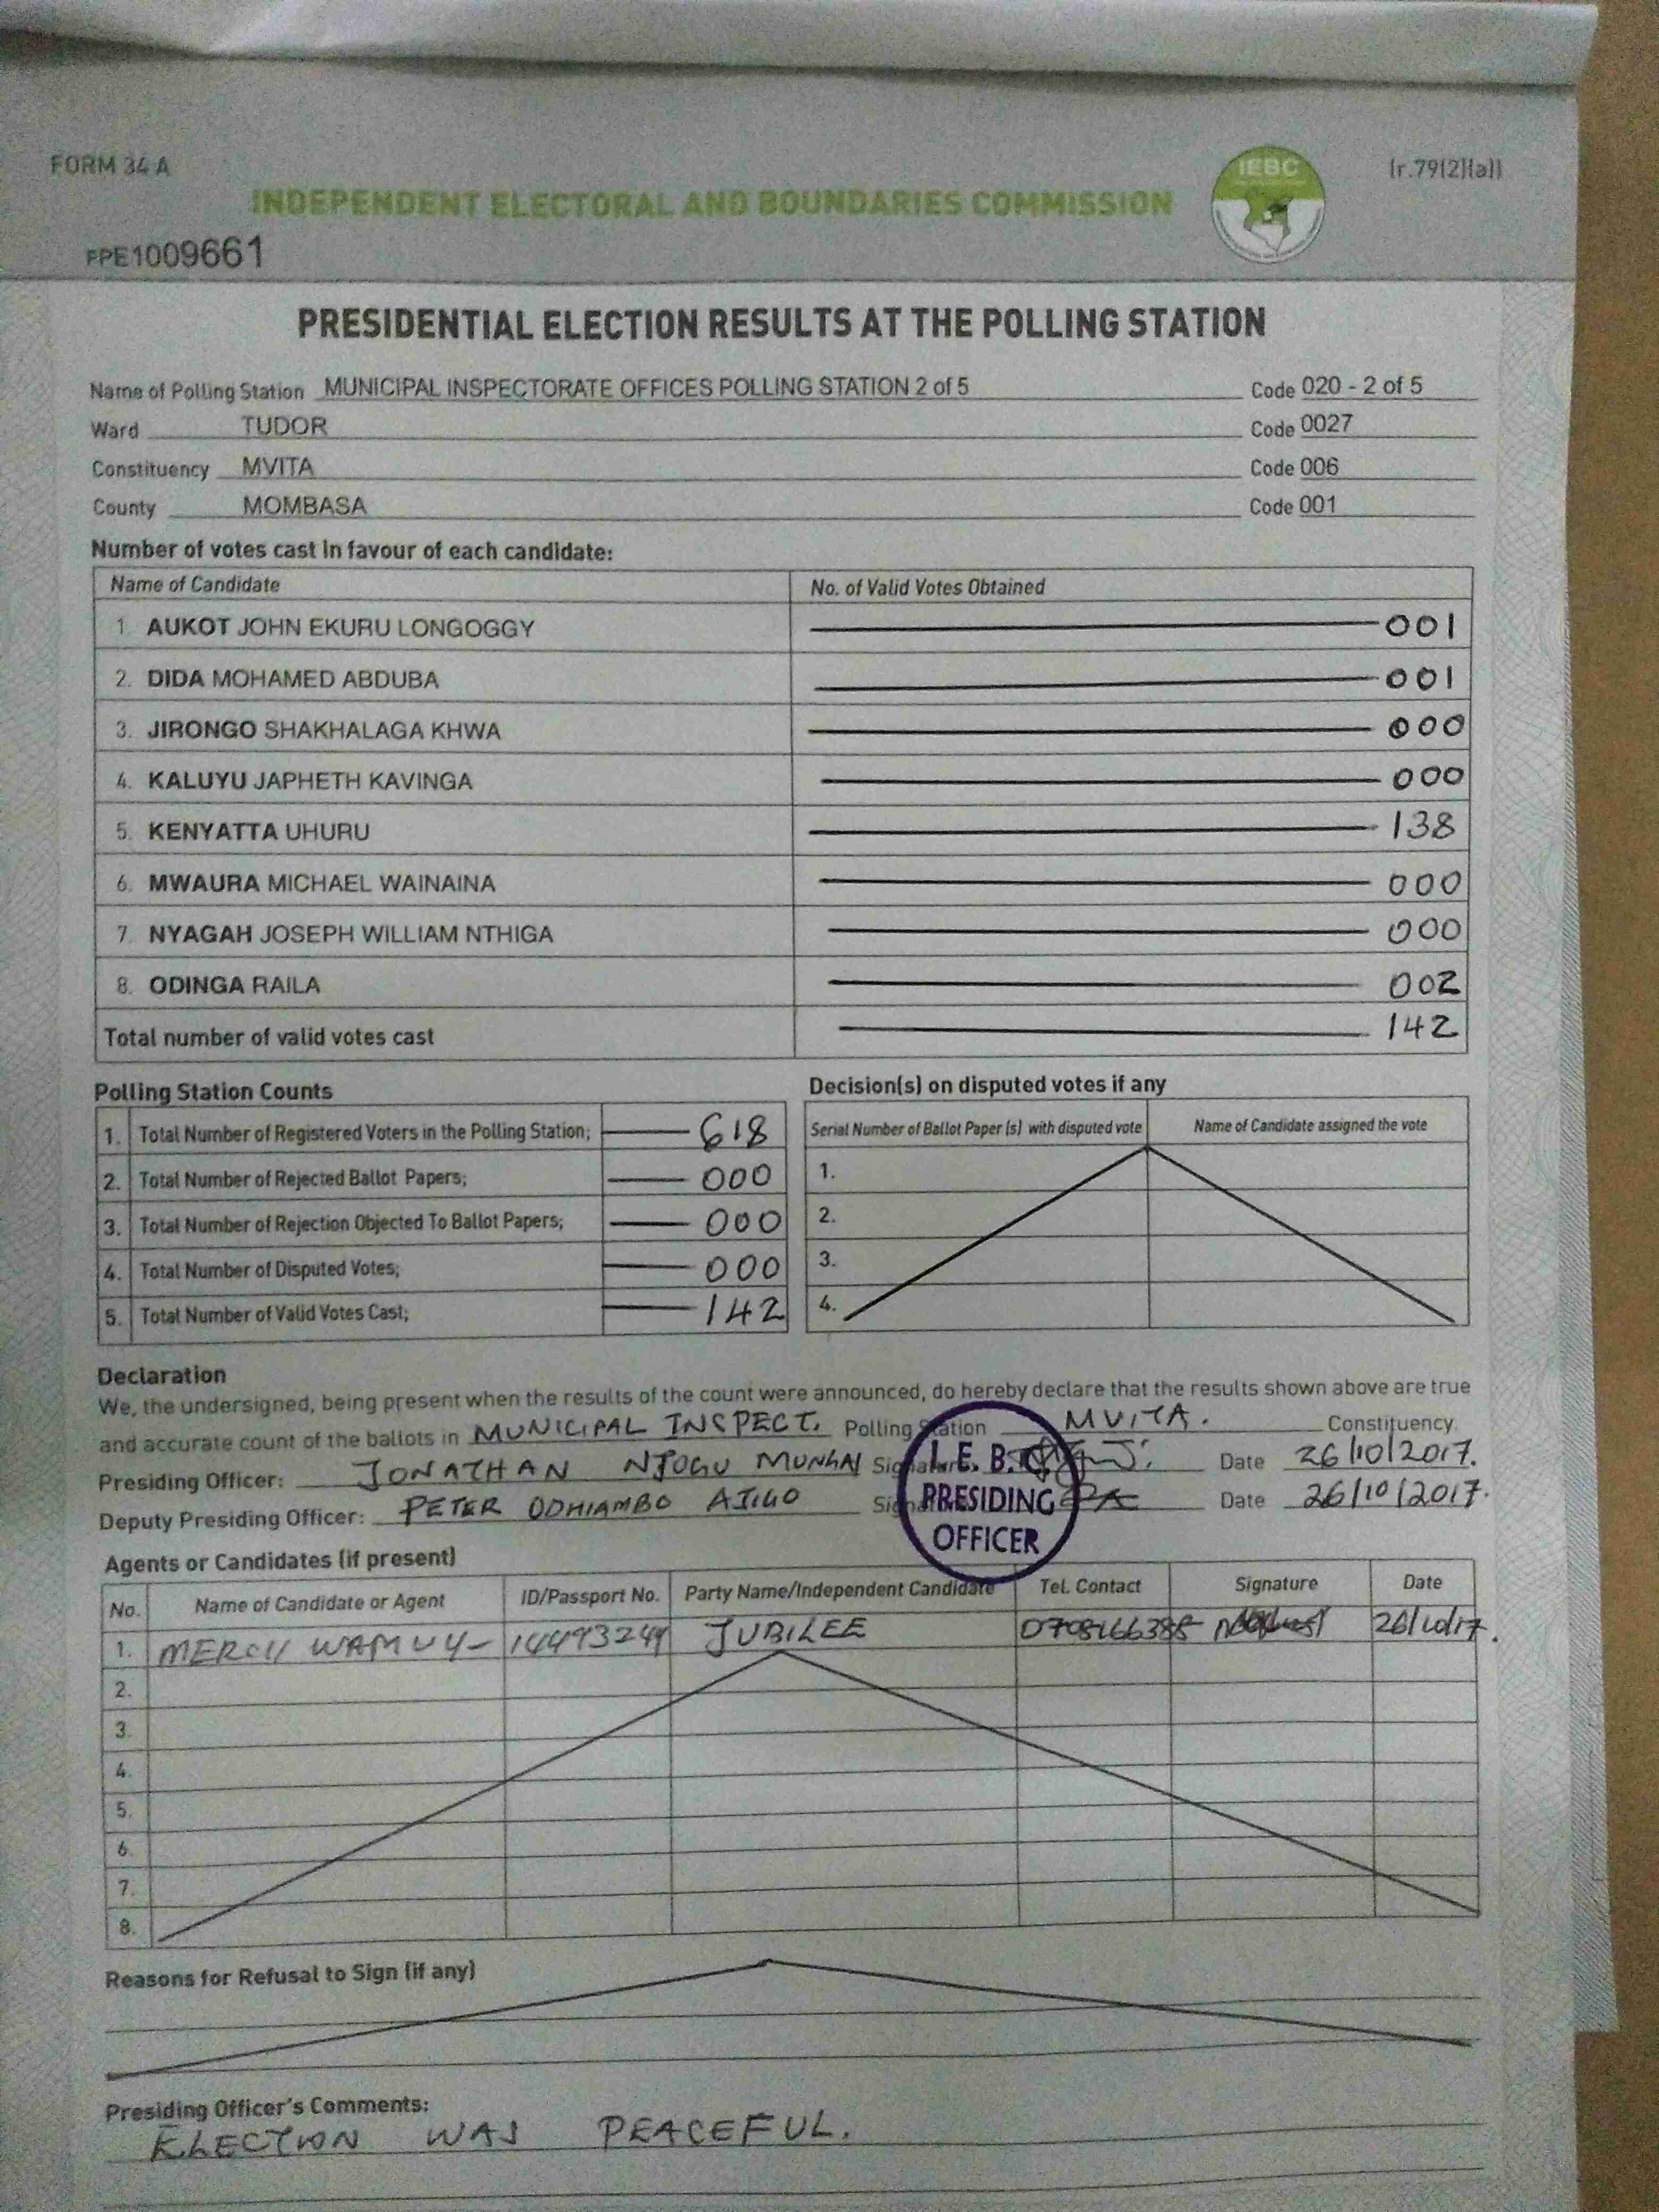 FORM 34 A
IEBC
(r.79(2)(a))
INDEPENDENT ELECTORAL AND BOUNDARIES COMMISSION
FPE1009661
PRESIDENTIAL ELECTION RESULTS AT THE POLLING STATION
Name of Polling Station MUNICIPAL INSPECTORATE OFFICES POLLING STATION 2 of 5 Code 020 - 2 of 5
Ward TUDOR Code 0027
Constituency MVITA Code 006
County MOMBASA Code 001
Number of votes cast in favour of each candidate:
Name of Candidate No. of Valid Votes Obtained
1. AUKOT JOHN EKURU LONGOGGY 001
2. DIDA MOHAMED ABDUBA 001
3. JIRONGO SHAKHALAGA KHWA 000
4. KALUYU JAPHETH KAVINGA 000
5. KENYATTA UHURU 138
6. MWAURA MICHAEL WAINAINA 000
7. NYAGAH JOSEPH WILLIAM NTHIGA 000
8. ODINGA RAILA 002
Total number of valid votes cast 142
Polling Station Counts
1. Total Number of Registered Voters in the Polling Station; 618
2. Total Number of Rejected Ballot Papers; 000
3. Total Number of Rejection Objected To Ballot Papers; 000
4. Total Number of Disputed Votes; 000
5. Total Number of Valid Votes Cast; 142
Decision(s) on disputed votes if any
Serial Number of Ballot Paper (s) with disputed vote Name of Candidate assigned the vote
1.
2.
3.
4.
Declaration
We, the undersigned, being present when the results of the count were announced, do hereby declare that the results shown above are true
and accurate count of the ballots in MUNICIPAL INSPECT. Polling Station MVITA. Constituency.
Presiding Officer: JONATHAN NJOGU MUNGAI Signature Date 26/10/2017.
Deputy Presiding Officer: PETER ODHIAMBO Signature Date 26/10/2017.
I.E.B.C
PRESIDING
OFFICER
Agents or Candidates (if present)
No. Name of Candidate or Agent ID/Passport No. Party Name/Independent Candidate Tel. Contact Signature Date
1. MERCY WAMUYU 14493249 JUBILEE 26/10/17.
2.
3.
4.
5.
6.
7.
8.
Reasons for Refusal to Sign (if any)
Presiding Officer's Comments:
ELECTION WAS PEACEFUL.